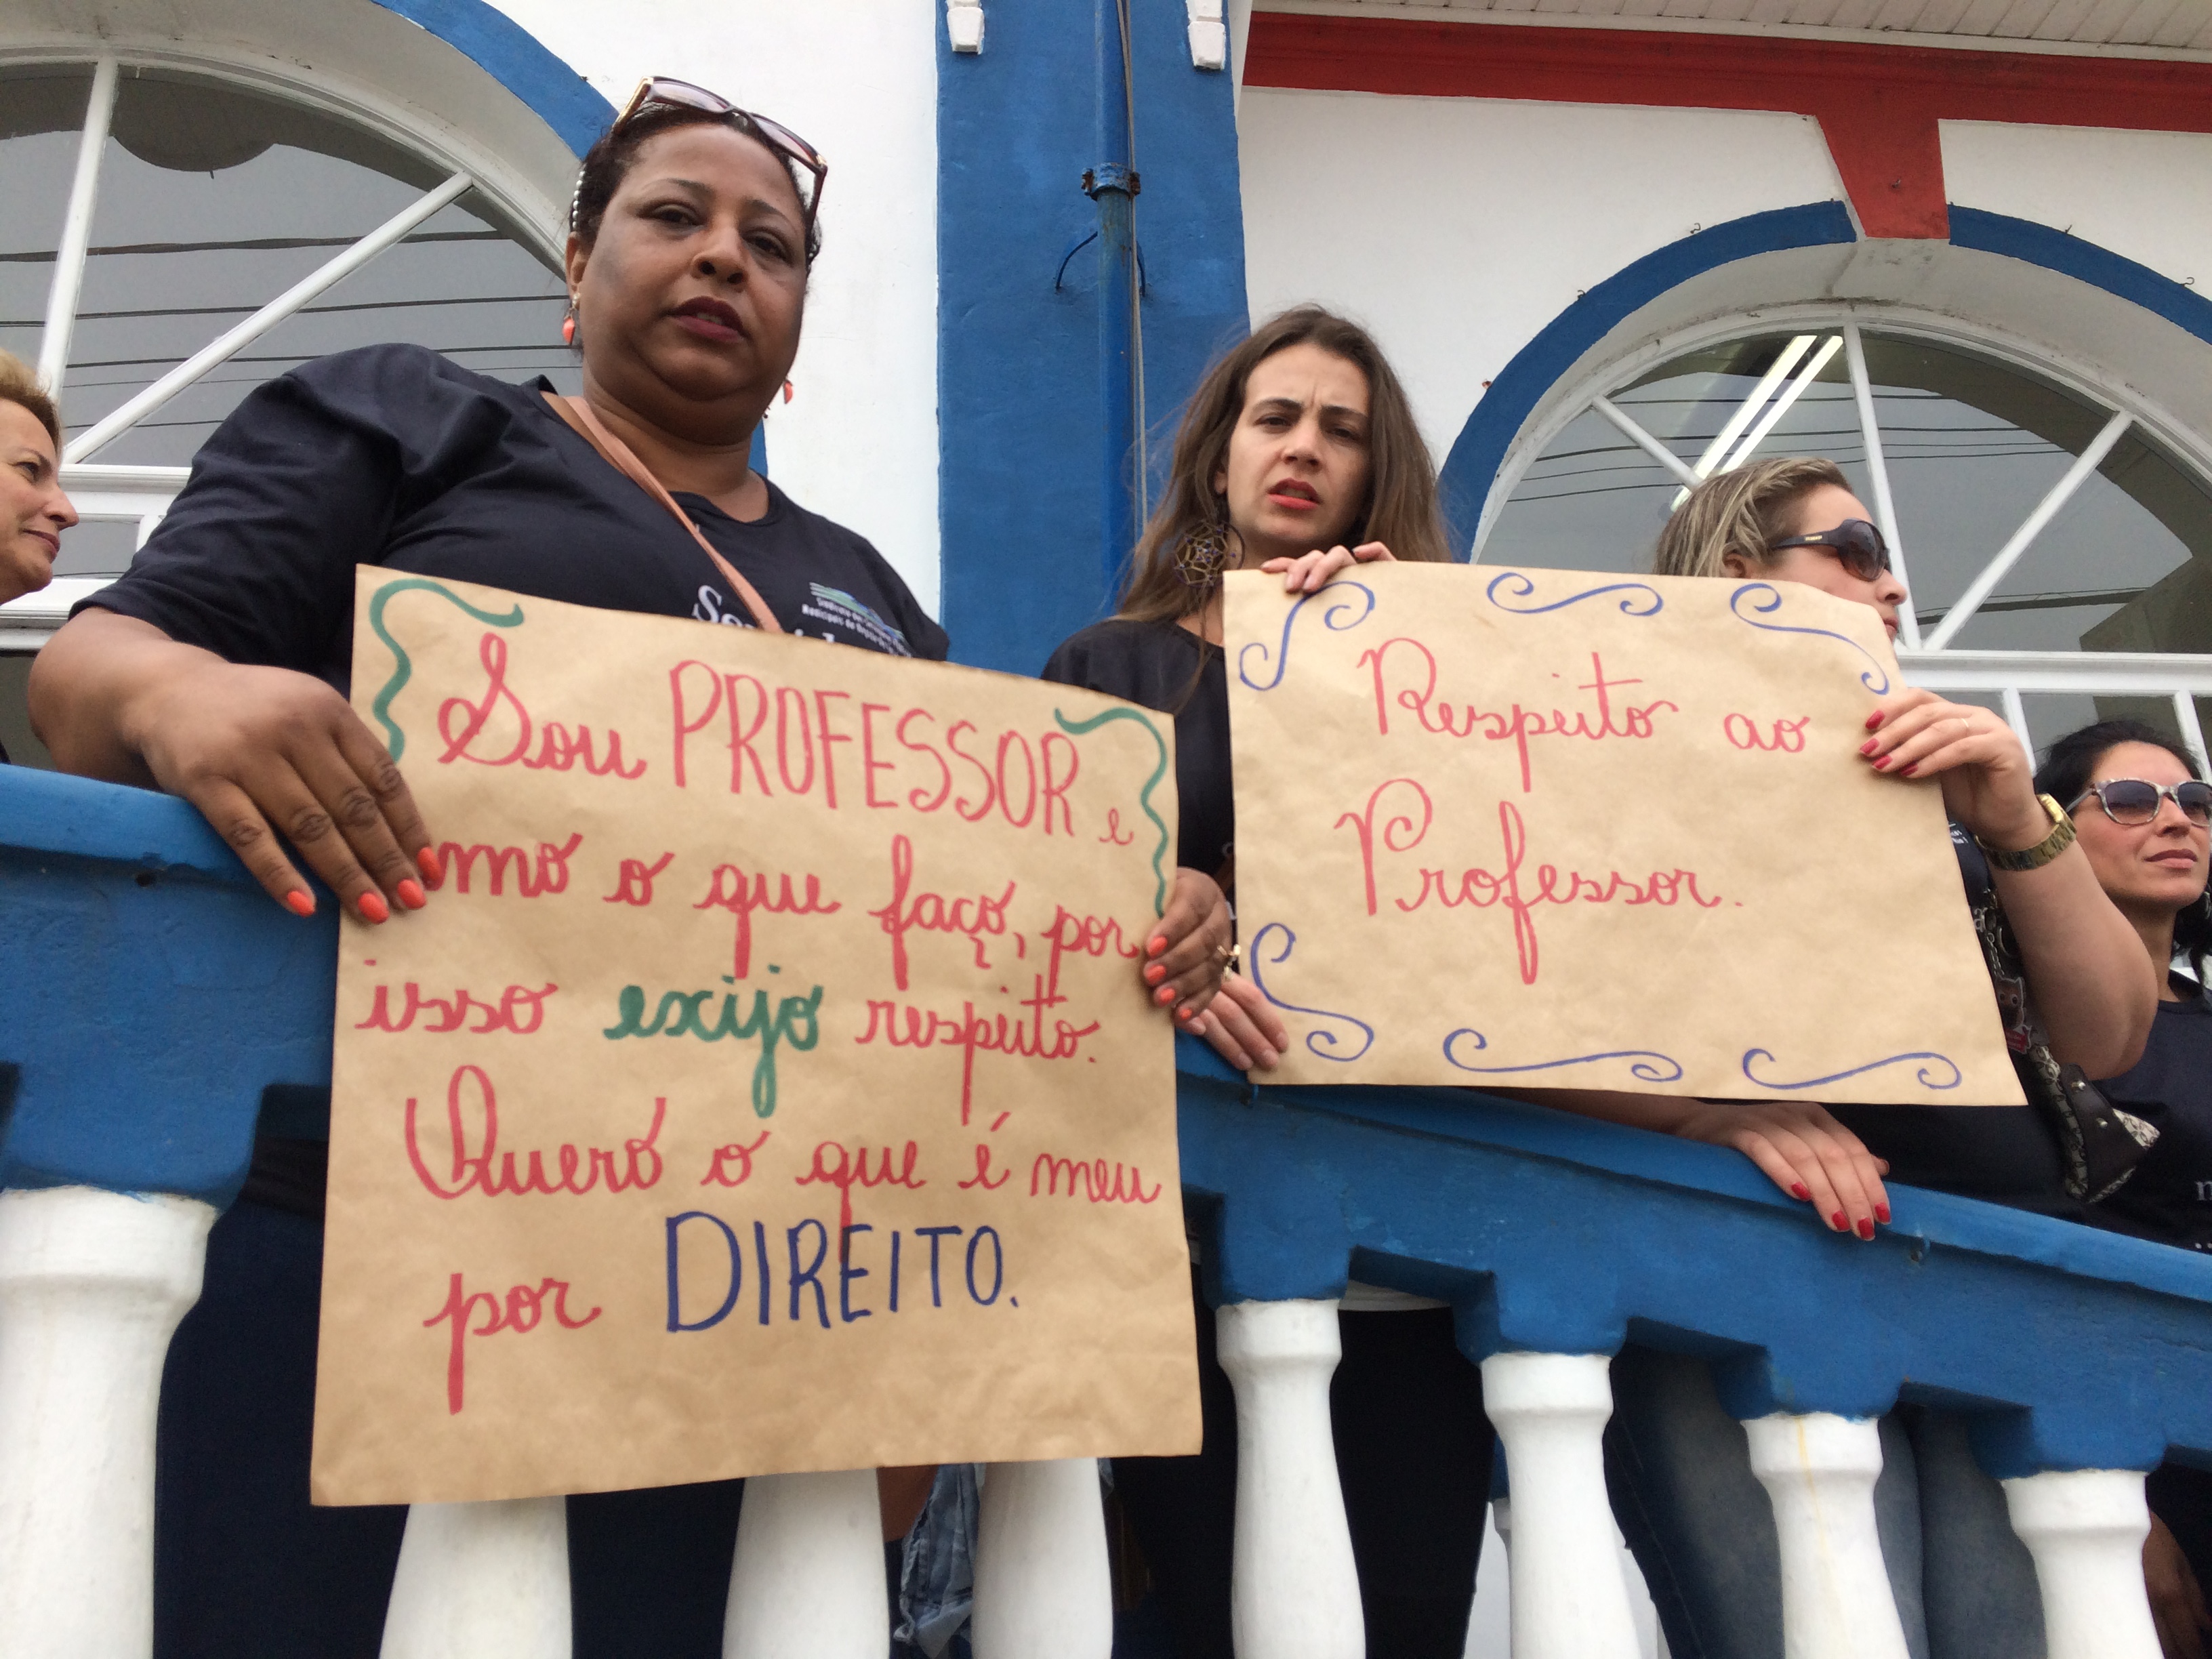 Sou PROFESSOR e
amo o que faço, por
isso exijo respeito.
Quero o que é meu
por DIREITO.
Respeito ao
Professor.